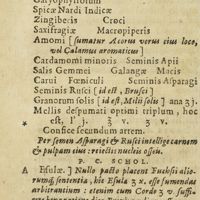 Caryophyllorum
Spicæ Nardi Indicæ
Zingiberis Croci
Saxifragiæ Macropiperis
Amomi [sumatur Acorus verus eius loco,
vel Calamus aromaticus]
Cardamomi minoris Seminis Apii
Salis Gemmei Galangæ Macis
Carui Fœniculi Seminis Asparagi
Seminis Rusci [id est, Brusci]
Granorum solis [id est, Milii solis] ana ʒ j.
Mellis despumati optimi triplum, hoc
est, ʒ v.
Confice secundum artem.
Per semen Asparagi & Rusci intellige carnem
& pulpam eius: reiectis nucleis osseis.
P. C. SCHOL.
A Esulæ.] Nullo pacto placent Fuchsii alio-
rumq; sententia, hic Esula ʒ v. esse sumendas
arbitrantium: etenim cum Cords ʒ v. suffi-